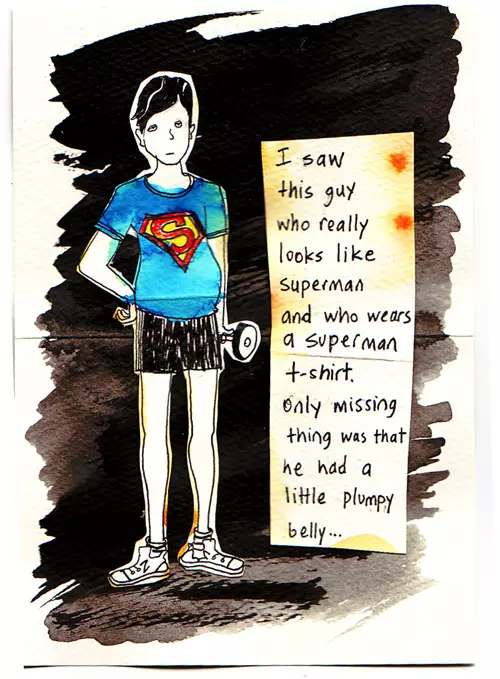 S
I saw
this guy
who really
looks like
superman
and who wears
a superman
t-shirt.
Only missing
thing was that
he had a
little plumpy
belly...